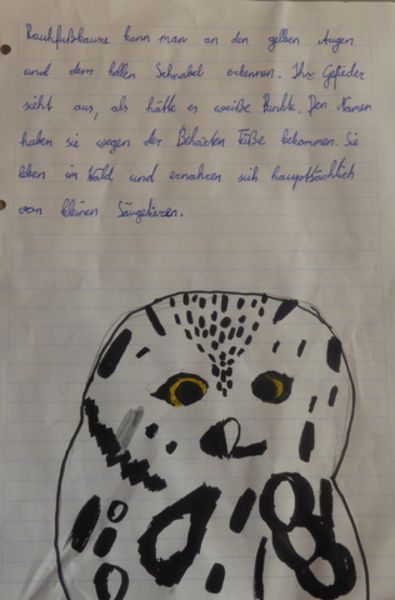 Rauhfußkause kann man an den gelben Augen
und dem hellen Schnabel erkennen. Ihr Gefieder
sieht aus, als hätte es weiße Punkte. Den Namen
haben sie wegen der Behaarten Füße bekommen. Sie
leben im Wald und ernahren sich hauptsächlich
von kleinen Säugetieren.